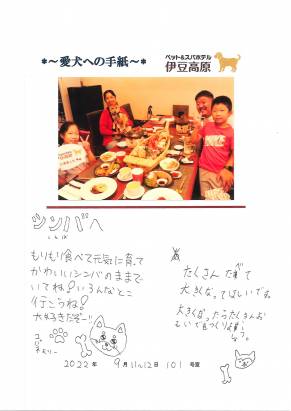 ペット&スパホテル
伊豆高原
*～愛犬への手紙～*
シンバへ
もりもり食べて元気に育って
かわいいシンバのままで
いてね!いろんなとこ
行こうね!
大好きだぞー!!
たくさんたべて
大きくなってほしいです。
大きくなったらたくさんお
2022年 9月11～12日 101号室